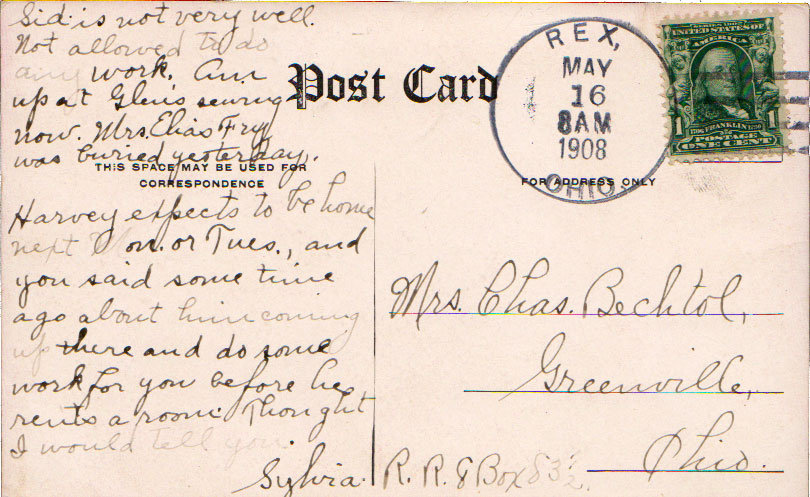 Sid is not very well.
Not allowed to do
any work. Am
up at Glen's sewing
now. Mrs. Elias Fry
was buried yesterday.
THIS SPACE MAY BE USED FOR
CORRESPONDENCE
Harvey expects to be home
next Mon. or Tues., and
you said some time
ago about him coming
up there and do some
work for you before he
rents a room. Thought
I would tell you.
Sylvia.
Post Card
REX,
MAY
16
8AM
1908
OHIO.
UNITED STATES OF
AMERICA
1706 FRANKLIN 1790
1 POSTAGE 1
ONE CENT
FOR ADDRESS ONLY
Mrs. Chas. Bechtol,
Greenville,
Ohio.
R. R. 8 Box 83½